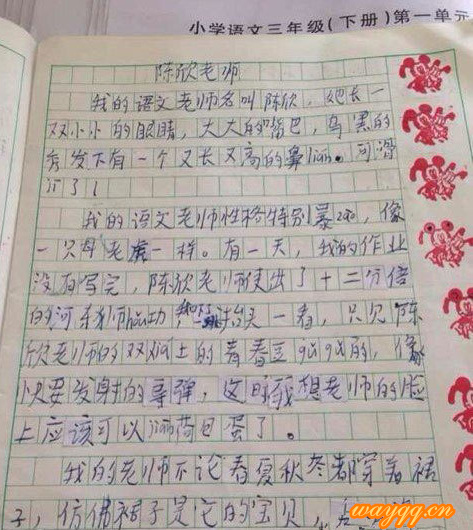 小学语文三年级(下册)第一单元
陈欣老师
我的语文老师名叫陈欣，她长一
双小小的眼睛，大大的嘴巴，乌黑的
秀发下有一个又长又高的鼻liang。可滑
了！
我的语文老师性格特别暴zao，像
一只母老虎一样。有一天，我的作业
没有写完，陈欣老师使出了十二分倍
的河东狮hou功，抬头一看，只见陈
欣老师的双jia上的青春豆gugu的，像
以要发射的导弹，这时我想老师的脸
上应该可以jian荷包蛋了。
我的老师不论春夏秋冬都穿着裙
子，仿佛裙子是它的宝贝，
waygq.cn